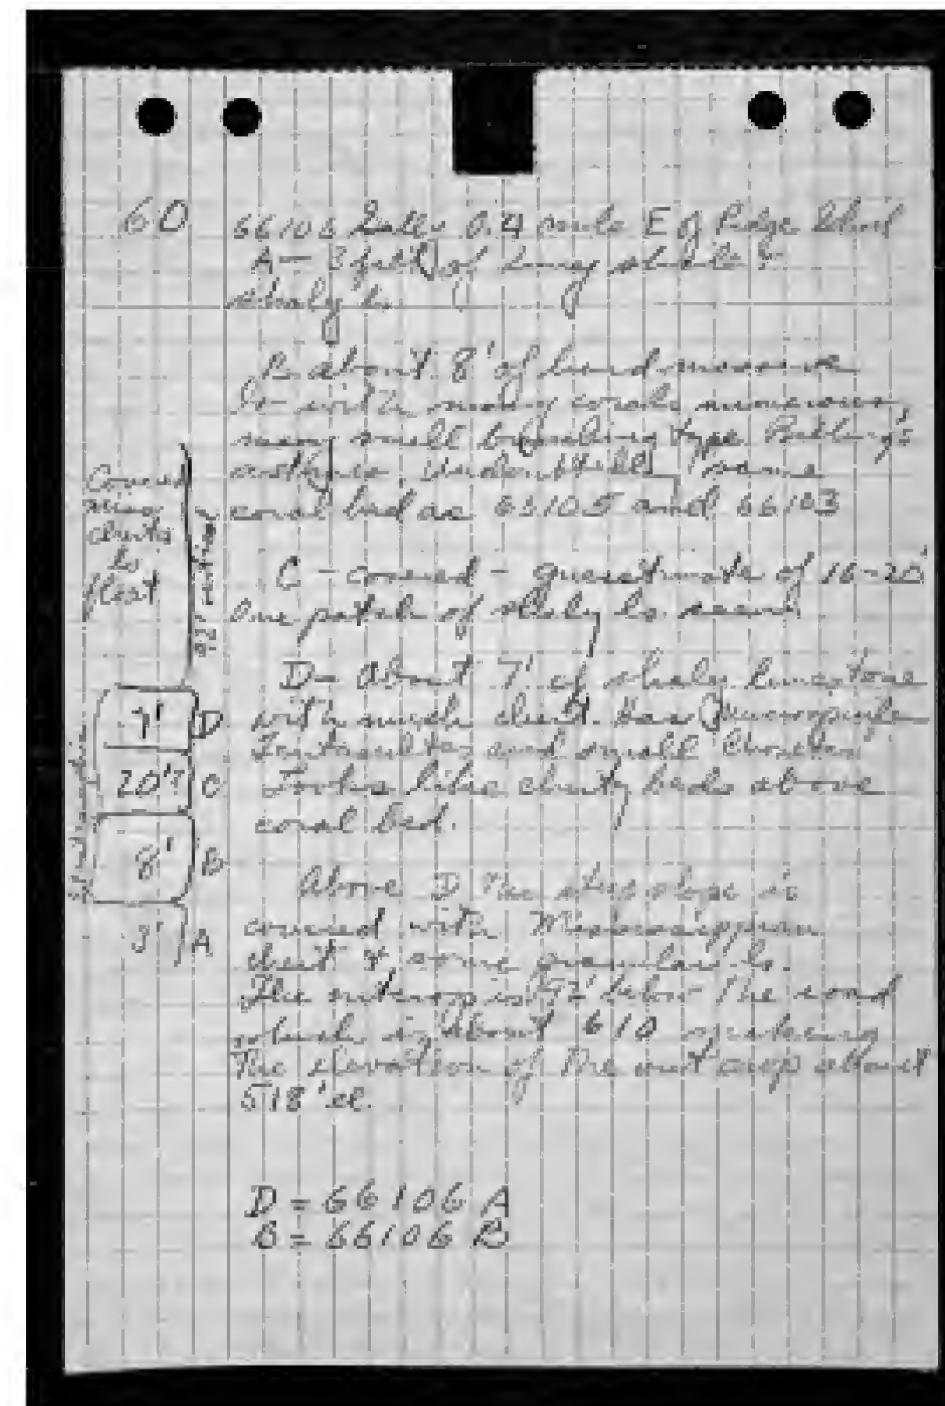 60
66106 Gully 0.4 mile E of Ridge School
A - 3 feet of limey shale &
shaly ls
B about 8' of hard massive
ls with many corals numerous,
many small branching type.
same
coral bed as 66105 and 66103
C - covered - guesstimate of 16-20'
One patch of shaly ls. seen.
D - About 7' of shaly limestone
with much chert. Has
and small "Chonetes"
Looks like cherty beds above
coral bed.
Above D the slope is
covered with Mississippian
chert & some granular ls.
The outcrop is 92' below the road
which is about 610 making
the elevation of the outcrop about
518' el.
D = 66106 A
B = 66106 B
Covered
miss
cherts
ls
float
92' vertical
7' D
20'? C
8' B
3' A